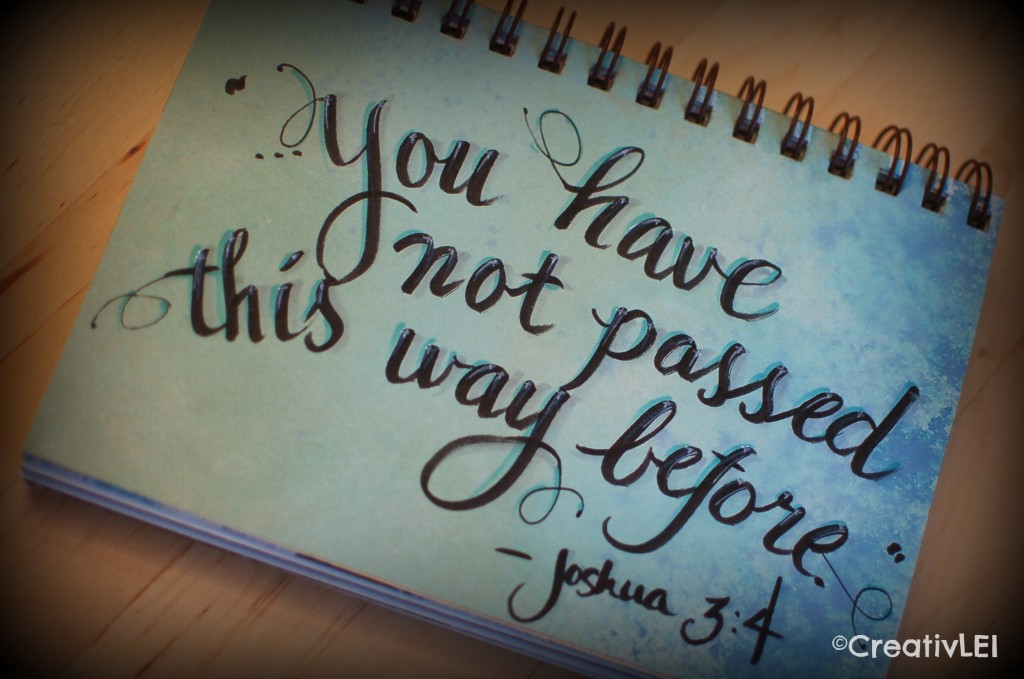 "...You have
not passed
this way before."
- Joshua 3:4
©CreativLEI